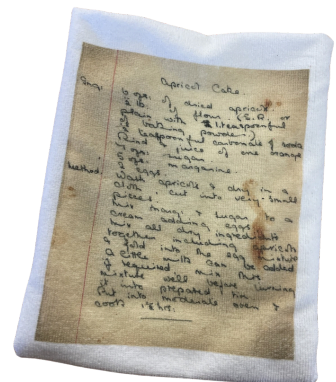 Apricot Cake
Ing. 6 ozs. of dried apricots
½ lb. of flour (S.R. or
plain with 1 teaspoonful
of baking powder.)
½ teaspoonful carbonate of soda
Rind & juice of one orange
6 ozs. sugar
6 ozs. margarine.
eggs.
Method. Wash apricots & dry in a
cloth, cut into very small
pieces.
Put marg: & sugar to a
cream adding eggs.
mix all dry ingredients
together including apricots
& fold into the egg mixture
A little milk can be added
if required mix this
mixture well before turning
it into prepared tin
Put into moderate oven &
cook hrs.